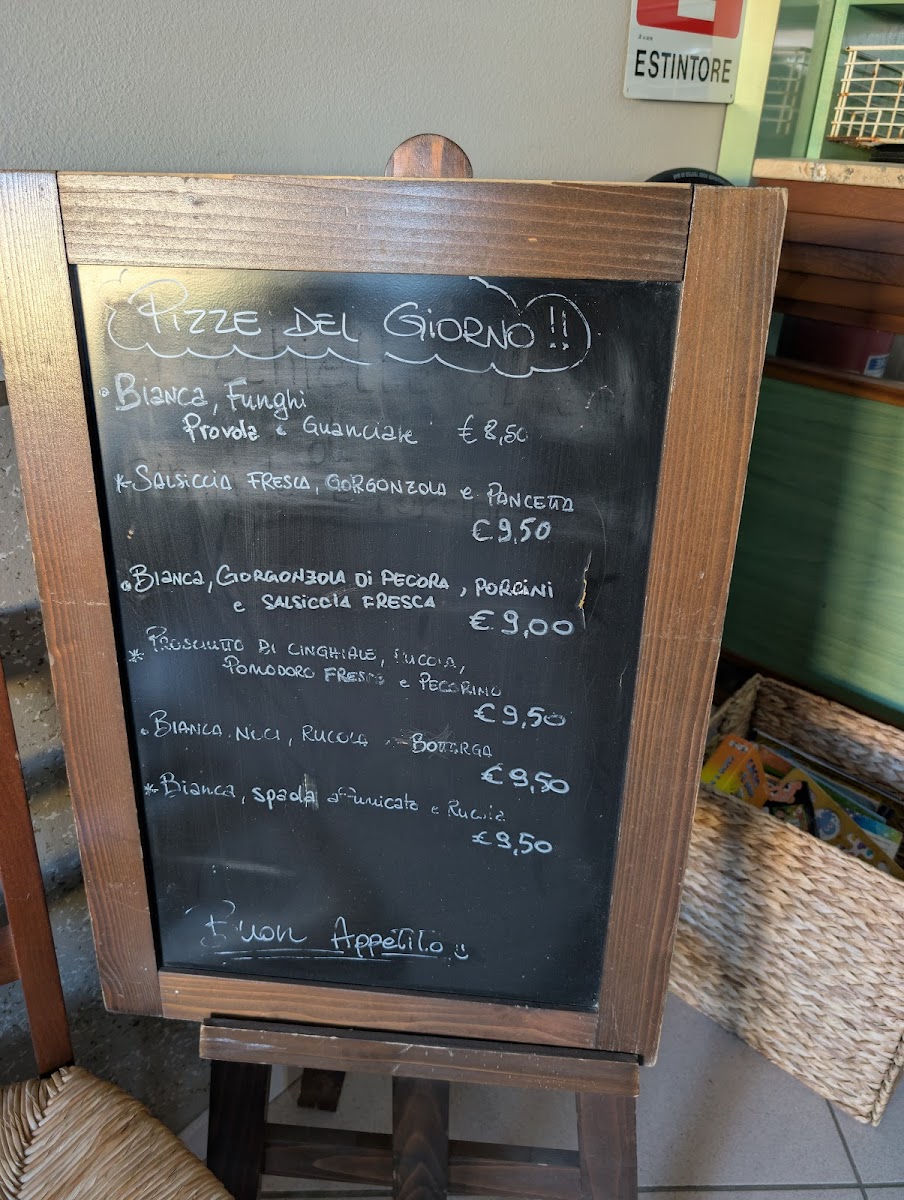 ESTINTORE
PIZZE DEL GIORNO !!
Bianca, Funghi
Provola e Guanciale € 8,50
SALSICCIA FRESCA, GORGONZOLA e PANCETTA
€ 9,50
Bianca, GORGONZOLA DI PECORA, PORCINI
e SALSICCIA FRESCA
€ 9,00
PROSCIUTTO DI CINGHIALE,
POMODORO FRESCO e PECORINO
€ 9,50
BIANCA, NOCI, RUCOLA, BOTTARGA
€ 9,50
Bianca, spada affumicato e Rucola
€ 9,50
Buon Appetito